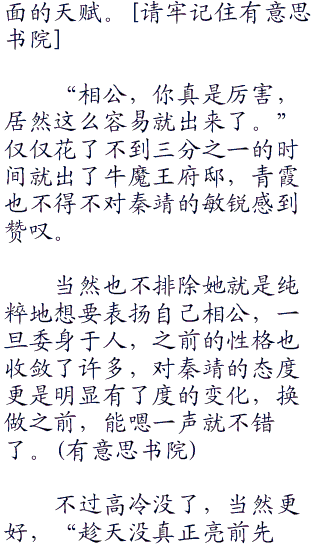 面的天赋。[请牢记住有意思
书院]
“相公，你真是厉害，
居然这么容易就出来了。”
仅仅花了不到三分之一的时
间就出了牛魔王府邸，青霞
也不得不对秦靖的敏锐感到
赞叹。
当然也不排除她就是纯
粹地想要表扬自己相公，一
旦委身于人，之前的性格也
收敛了许多，对秦靖的态度
更是明显有了度的变化，换
做之前，能嗯一声就不错
了。(有意思书院)
不过高冷没了，当然更
好，“趁天没真正亮前先